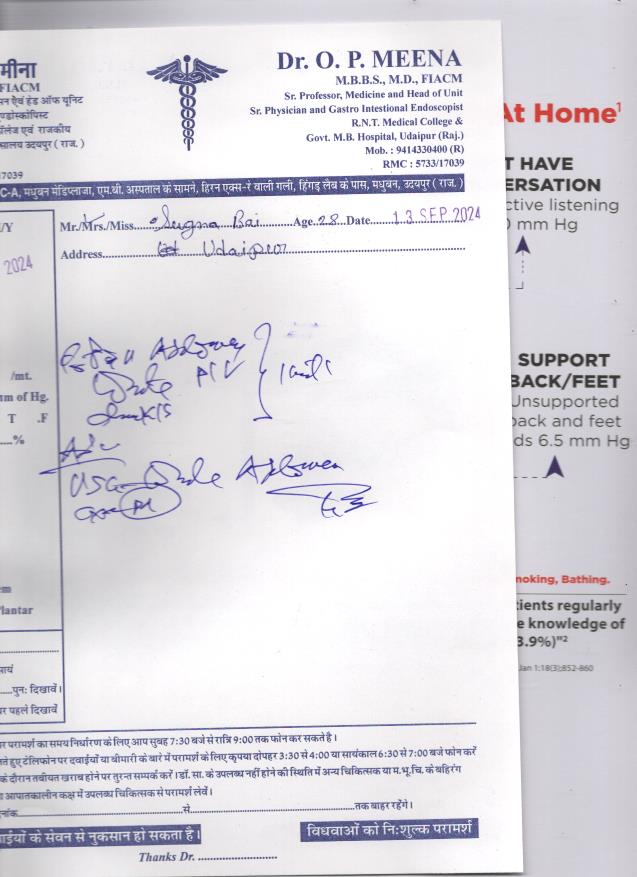 मीना
FIACM
सन ऐवं हेड ऑफ यूनिट
ण्डोस्कोपिस्ट
ॉलेज एवं राजकीय
सालय उदयपुर ( राज. )
17039
Dr. O. P. MEENA
M.B.B.S., M.D., FIACM
Sr. Professor, Medicine and Head of Unit
Sr. Physician and Gastro Intestional Endoscopist
R.N.T. Medical College &
Govt. M.B. Hospital, Udaipur (Raj.)
Mob. : 9414330400 (R)
RMC : 5733/17039
C-A, मधुबन मेडिप्लाजा, एम.बी. अस्पताल के सामने, हिरन एक्स-रे वाली गली, हिंगड़ लैब के पास, मधुबन, उदयपुर ( राज. )
Mr./Mrs./Miss. Sugna Bai Age. 28 Date 13 SEP 2024
Address Udaipur
/Y
2024
/mt.
m of Hg.
T .F
%
Adv
USG Whole Abdomen
em
Plantar
सायं
पुनः दिखावें।
पर पहले दिखावें
परामर्श का समय निर्धारण के लिए आप सुबह 7:30 बजे से रात्रि 9:00 तक फोन कर सकते है।
ते हुए टेलिफोन पर दवाईयों या बीमारी के बारे में परामर्श के लिए कृपया दोपहर 3:30 से 4:00 या सायंकाल 6:30 से 7:00 बजे फोन करें
के दौरान तबीयत खराब होने पर तुरन्त सम्पर्क करें। डॉ. सा. के उपलब्ध नहीं होने की स्थिति में अन्य चिकित्सक या म.भू.चि. के बहिरंग
आपातकालीन कक्ष में उपलब्ध चिकित्सक से परामर्श लेवें।
नांक से तक बाहर रहेंगे।
वाईयों के सेवन से नुकसान हो सकता है।
विधवाओं को निःशुल्क परामर्श
Thanks Dr.
At Home1
T HAVE
ERSATION
ctive listening
0 mm Hg
SUPPORT
BACK/FEET
Unsupported
back and feet
ds 6.5 mm Hg
moking, Bathing.
tients regularly
e knowledge of
3.9%)"2
Jan 1:18(3);852-860